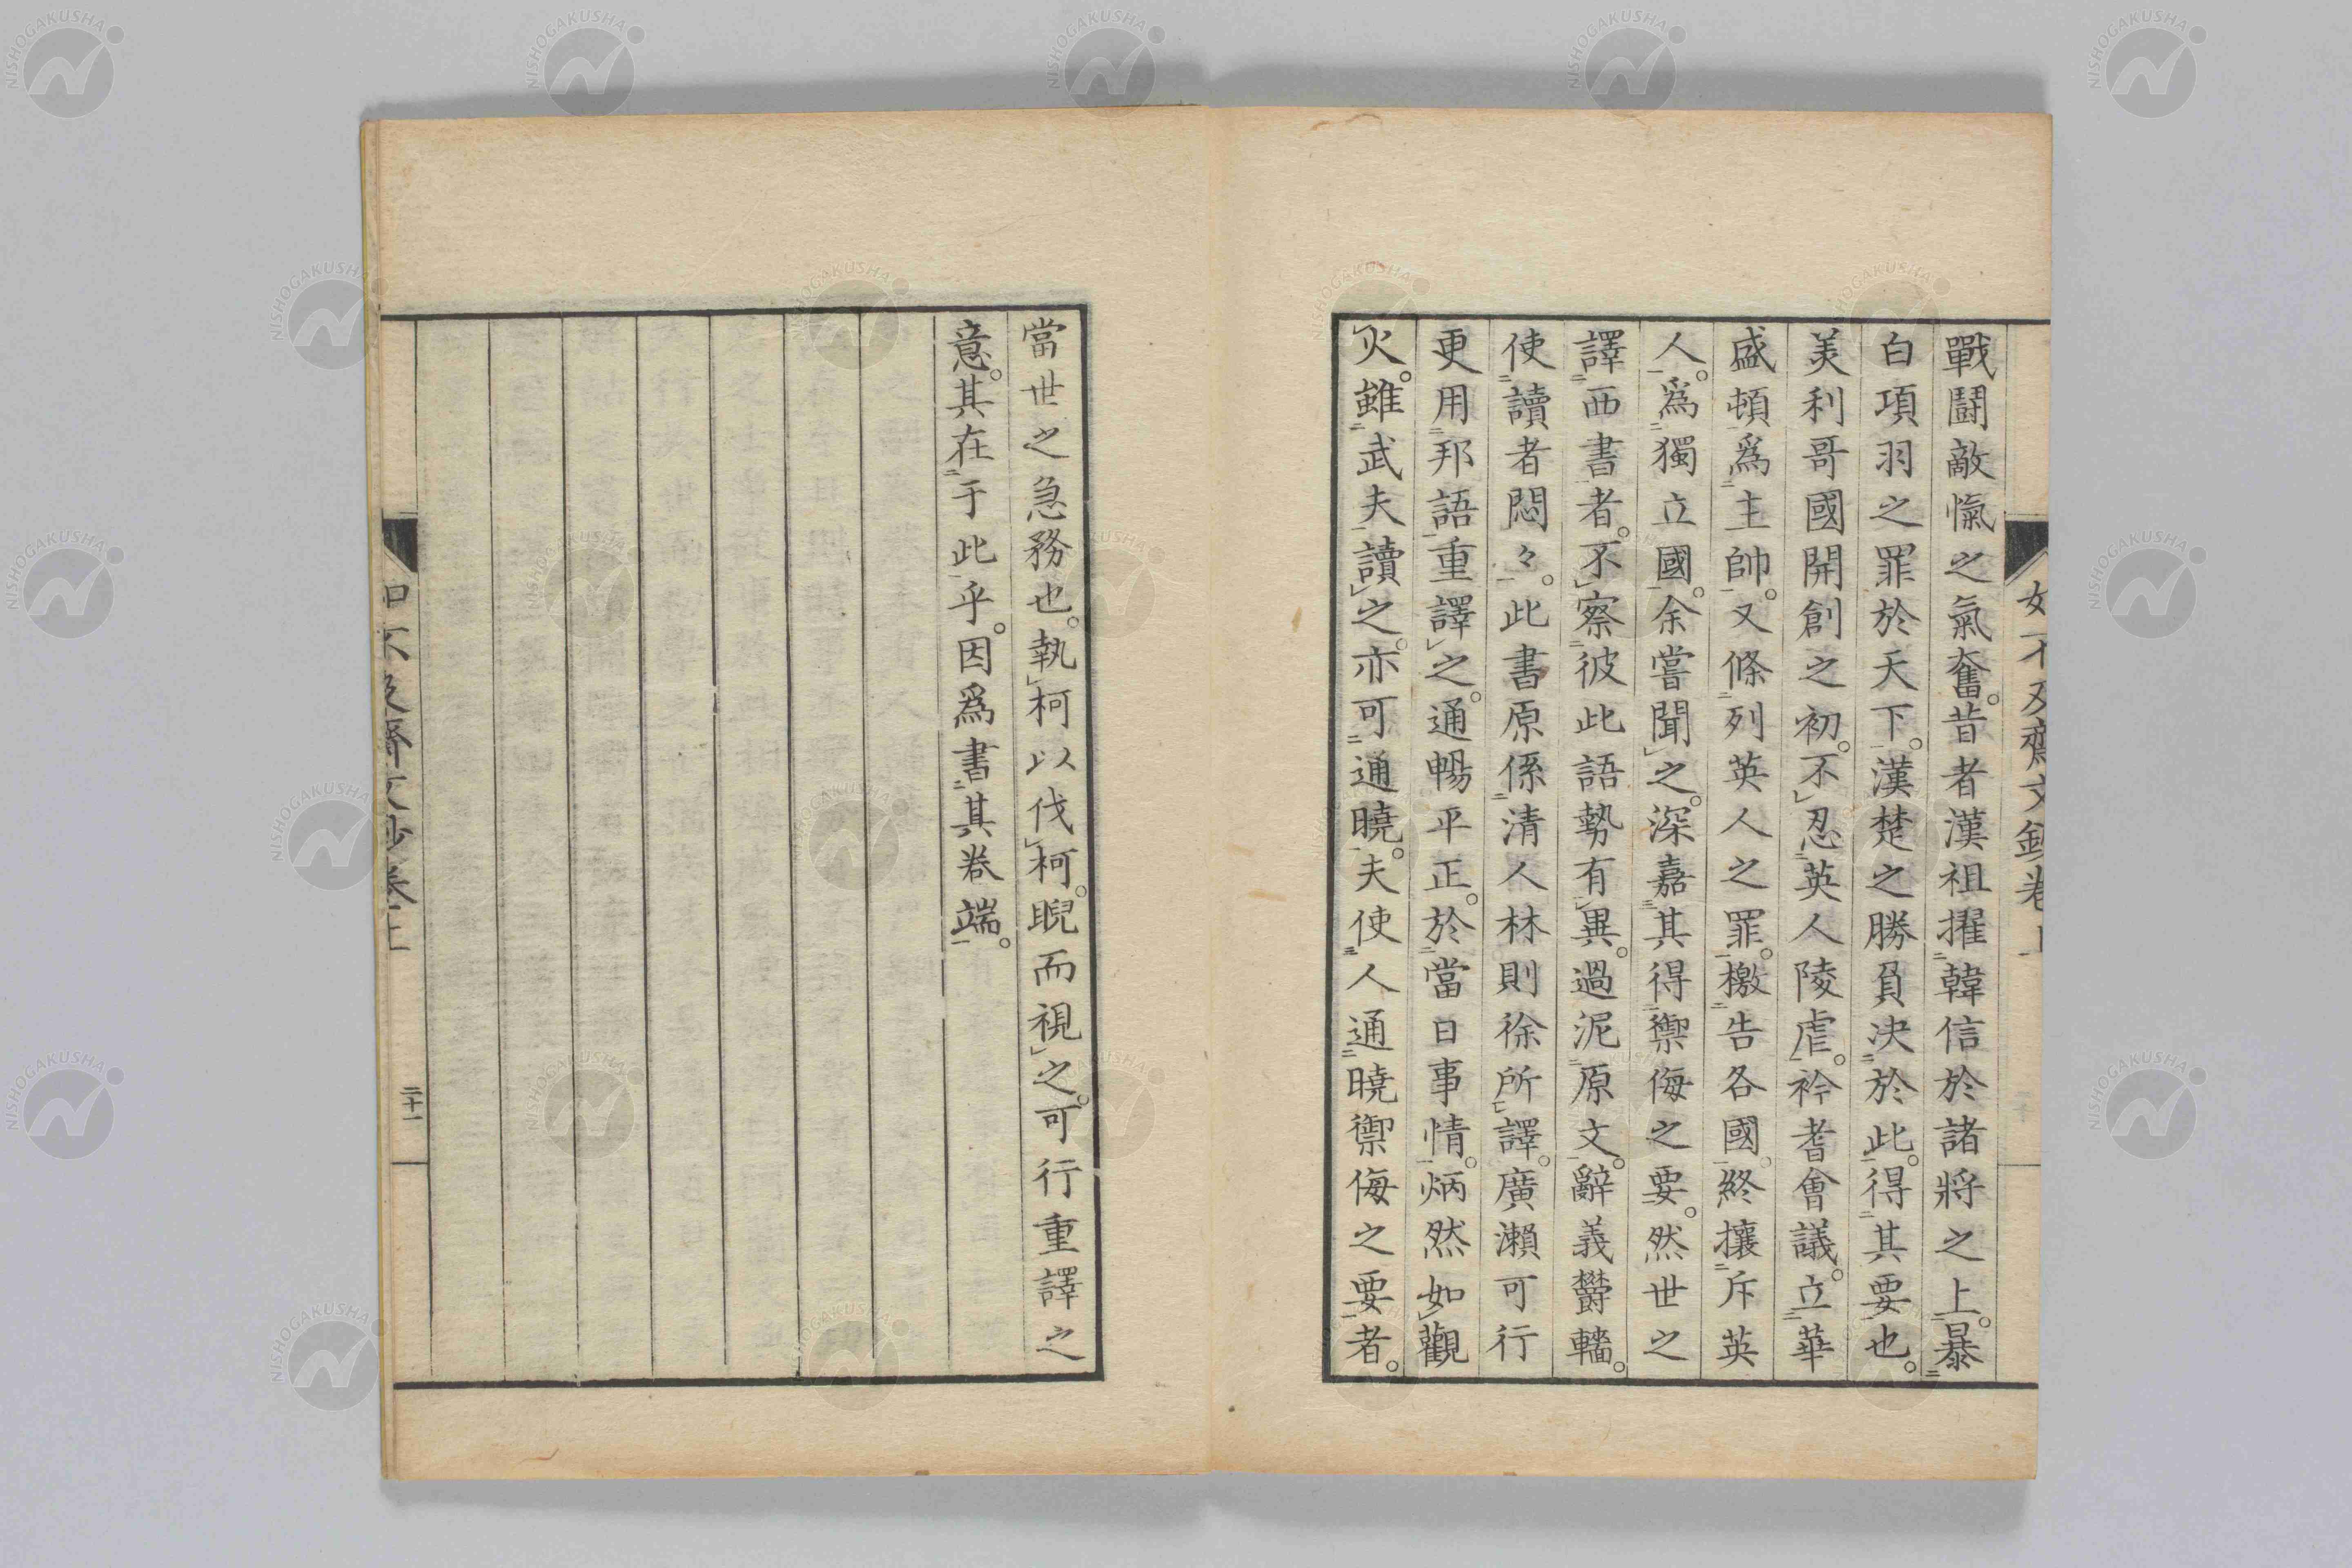 戰鬪敵愾之氣奮。昔者漢祖擢韓信於諸將之上。暴
白項羽之罪於天下。漢楚之勝負決於此。得其要也。
美利哥國開創之初。不忍英人陵虐。衿耆會議。立華
盛頓爲主帥。又條列英人之罪。檄告各國。終攘斥英
人。爲獨立國。余嘗聞之。深嘉其得禦侮之要。然世之
譯西書者。不察彼此語勢有異。過泥原文。辭義欝轖。
使讀者悶々。此書原係清人林則徐所譯。廣瀨可行
更用邦語重譯之。通暢平正。於當日事情。炳然如觀
火。雖武夫讀之。亦可通曉。夫使人通曉禦侮之要者。
當世之急務也。執柯以伐柯。睨而視之。可行重譯之
意。其在于此乎。因爲書其卷端。
如不及齋文鈔卷上
二十一
NISHOGAKUSHA